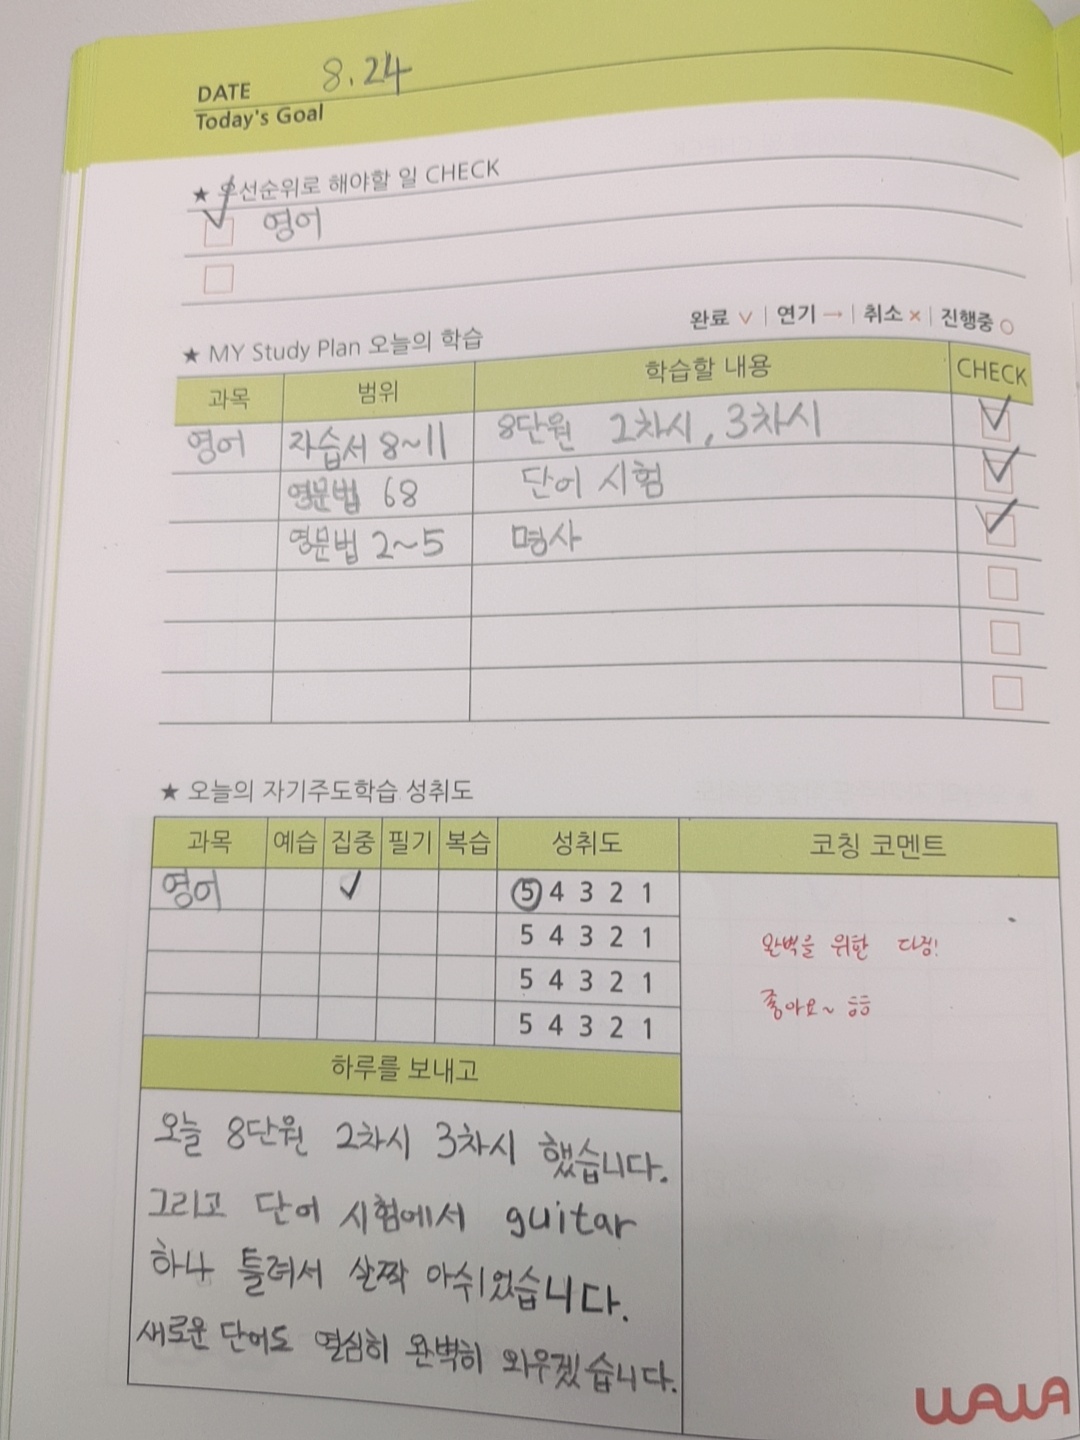 DATE 8.24
Today's Goal
★ 우선순위로 해야할 일 CHECK
영어
완료 ∨ | 연기 → | 취소 × | 진행중 ○
★ MY Study Plan 오늘의 학습
과목 범위 학습할 내용 CHECK
영어 자습서 8~11 8단원 2차시, 3차시
영문법 68 단어 시험
영문법 2~5 명사
★ 오늘의 자기주도학습 성취도
과목 예습 집중 필기 복습 성취도 코칭 코멘트
영어 ✓ 5 4 3 2 1
5 4 3 2 1
5 4 3 2 1
5 4 3 2 1
완벽을 위한 다짐!
좋아요~ ㅎㅎ
하루를 보내고
오늘 8단원 2차시 3차시 했습니다.
그리고 단어 시험에서 guitar
하나 틀려서 살짝 아쉬었습니다.
새로운 단어도 열심히 완벽히 외우겠습니다.
WAWA